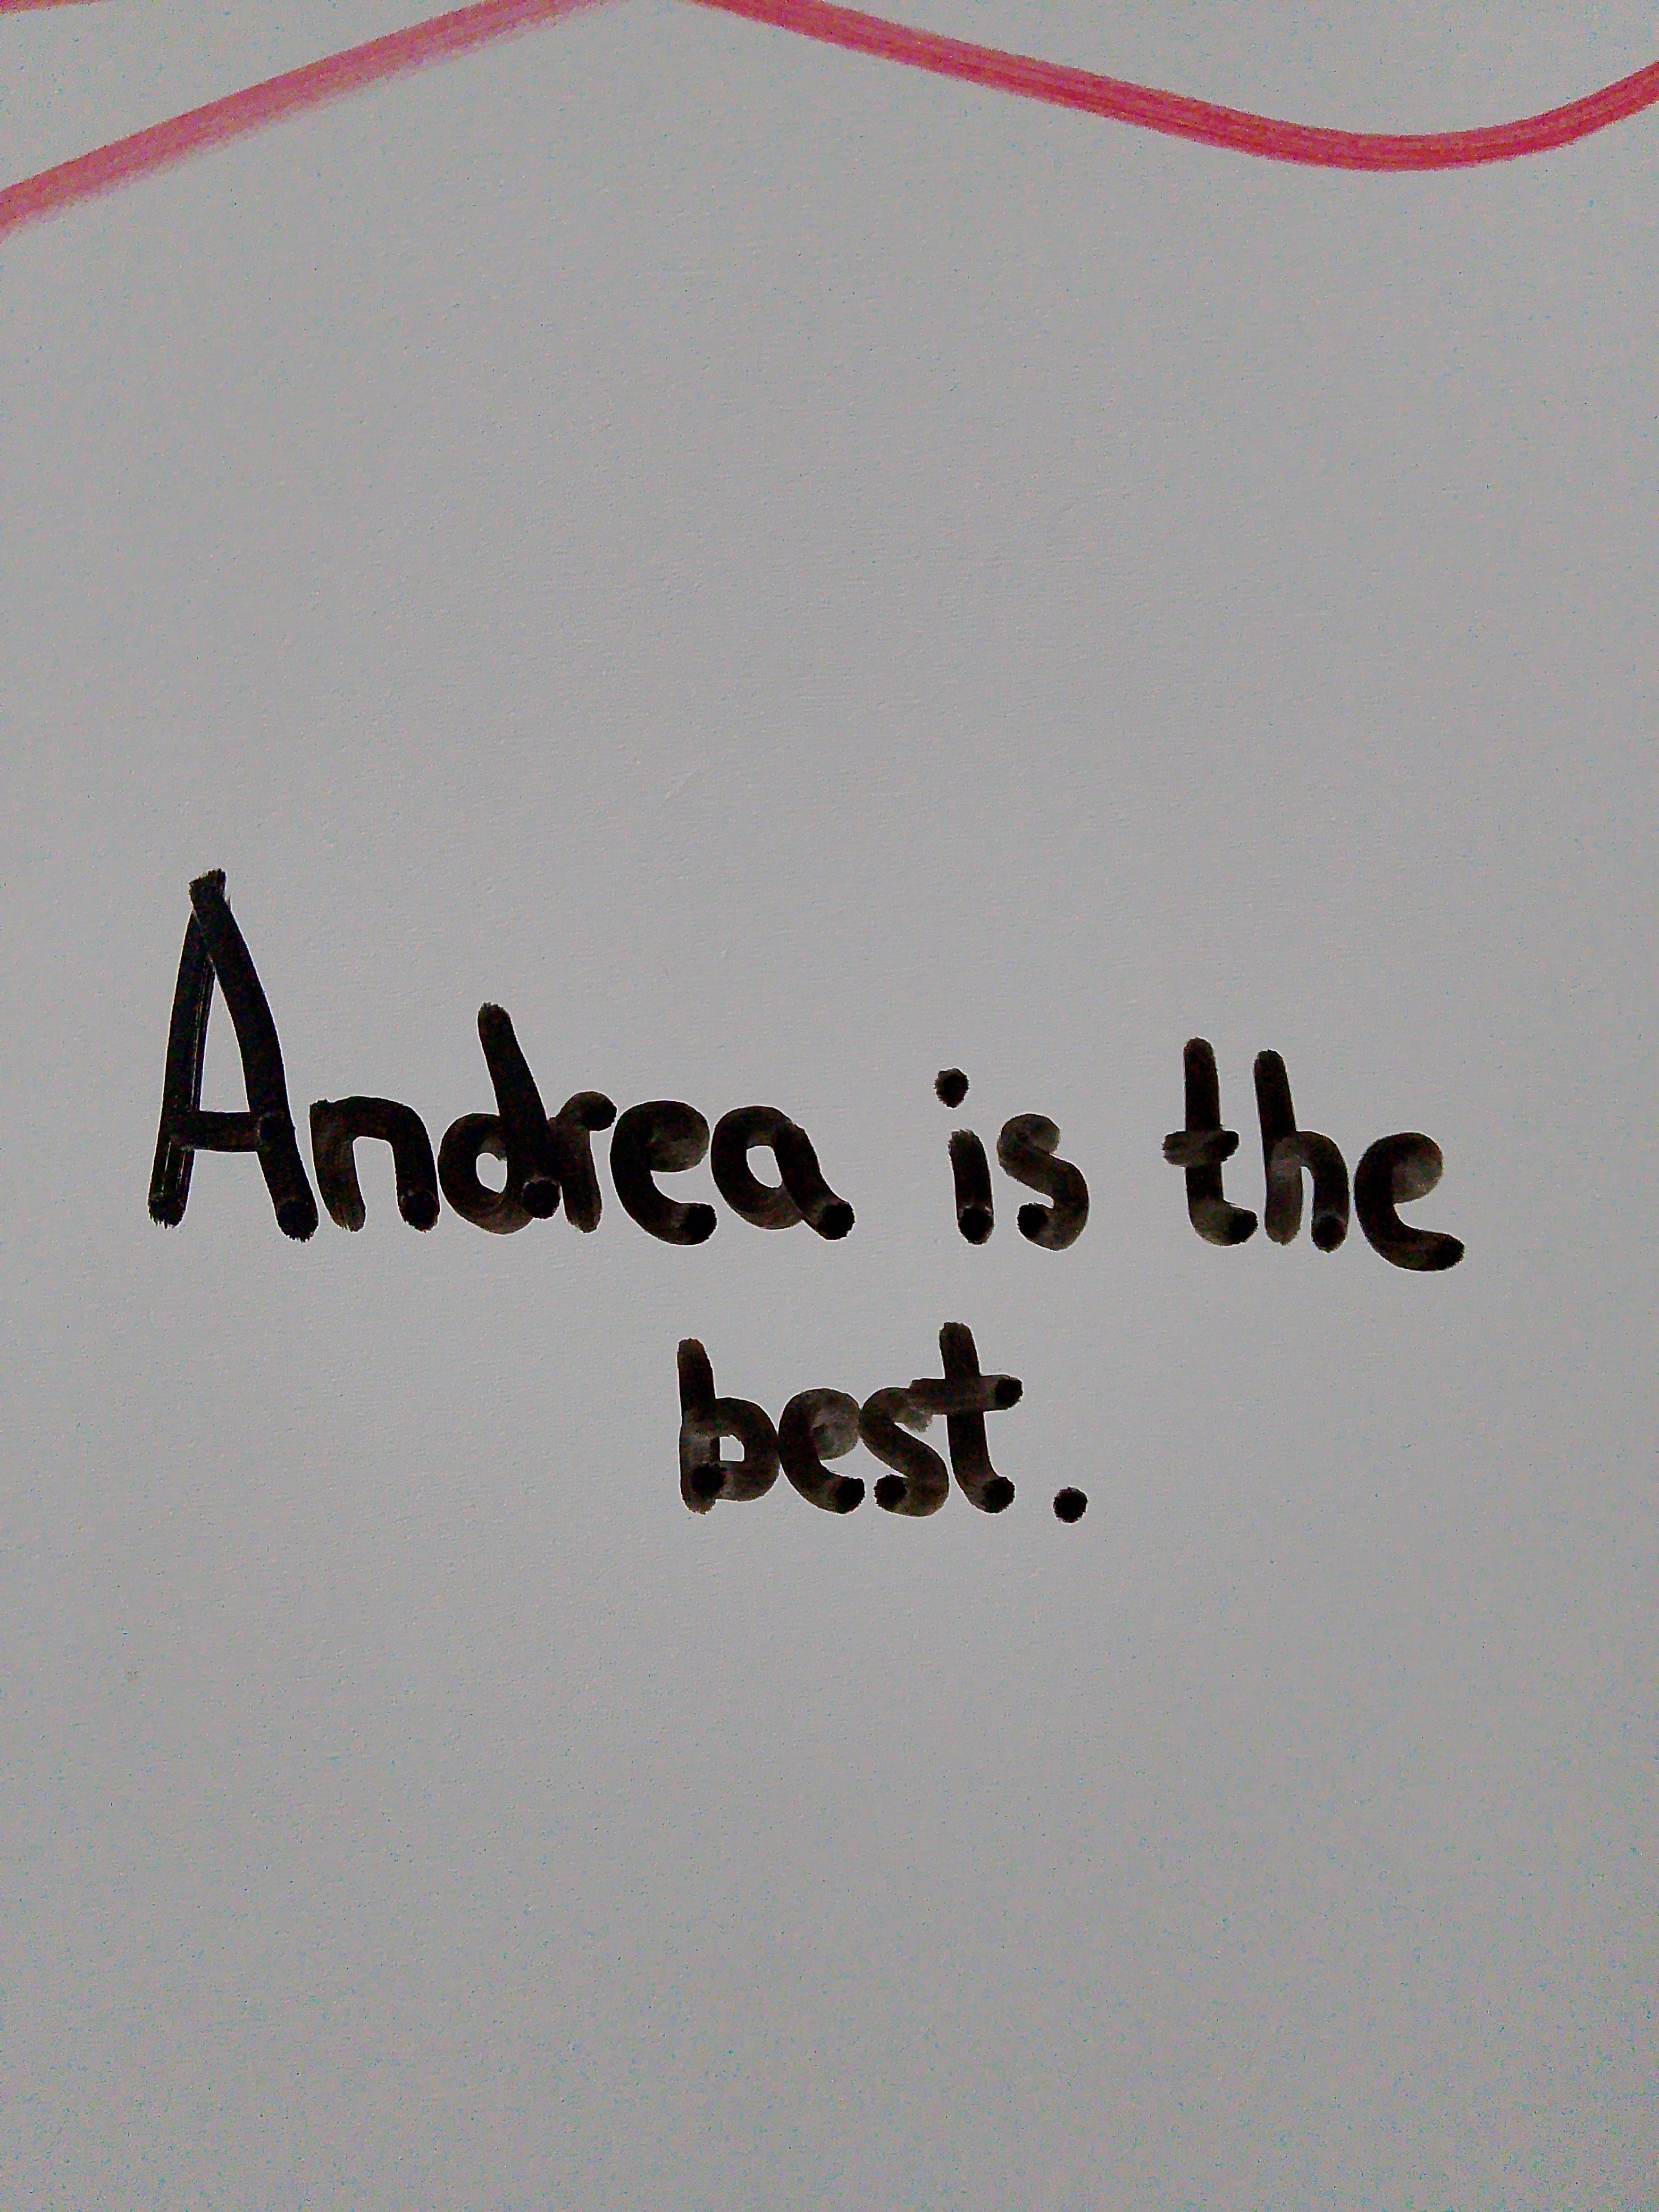 Andrea is the
best.